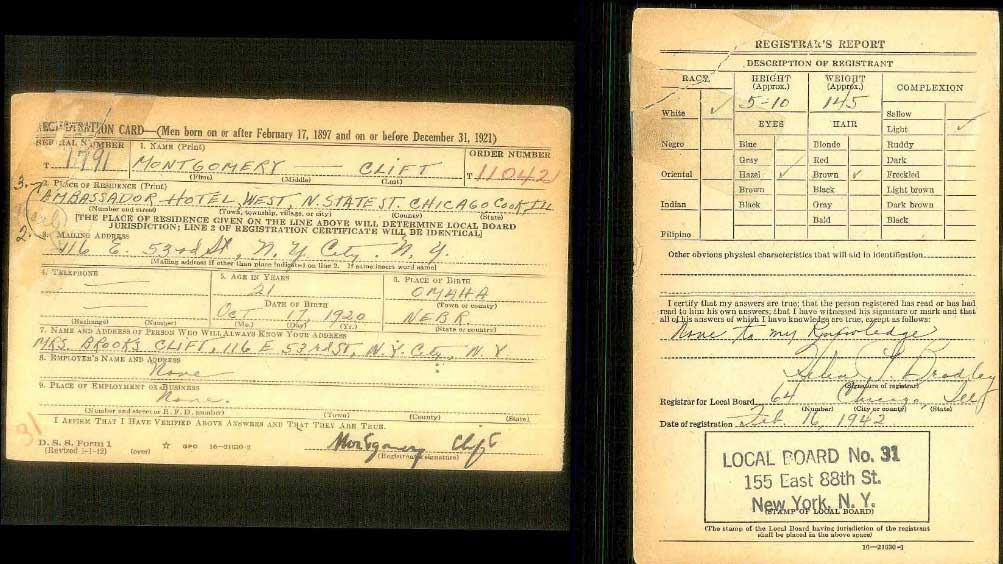 REGISTRATION CARD—(Men born on or after February 17, 1897 and on or before December 31, 1921)
SERIAL NUMBER
1. NAME (Print)
ORDER NUMBER
T 1791
MONTGOMERY — CLIFT
T 11042
(First) (Middle) (Last)
3.
2. PLACE OF RESIDENCE (Print)
AMBASSADOR HOTEL, WEST, N. STATE ST. CHICAGO COOK ILL
(Number and street) (Town, township, village, or city) (County) (State)
[THE PLACE OF RESIDENCE GIVEN ON THE LINE ABOVE WILL DETERMINE LOCAL BOARD
JURISDICTION; LINE 2 OF REGISTRATION CERTIFICATE WILL BE IDENTICAL]
2.
3. MAILING ADDRESS
116 E. 53rd St, N. Y. City. N. Y.
[Mailing address if other than place indicated on line 2. If same insert word same]
4. TELEPHONE
5. AGE IN YEARS
6. PLACE OF BIRTH
21
OMAHA
DATE OF BIRTH
(Town or county)
OCT 17, 1920
NEBR.
(Exchange) (Number) (Mo.) (Day) (Yr.) (State or country)
7. NAME AND ADDRESS OF PERSON WHO WILL ALWAYS KNOW YOUR ADDRESS
MRS. BROOKS CLIFT, 116 E 53RD ST, N.Y. City, N.Y
8. EMPLOYER'S NAME AND ADDRESS
None
9. PLACE OF EMPLOYMENT OR BUSINESS
None.
(Number and street or R. F. D. number) (Town) (County) (State)
I AFFIRM THAT I HAVE VERIFIED ABOVE ANSWERS AND THAT THEY ARE TRUE.
31
D. S. S. Form 1
(Revised 1-1-42) (over) ☆ GPO 16—21630-2
Montgomery Clift
(Registrant's signature)
REGISTRAR'S REPORT
DESCRIPTION OF REGISTRANT
RACE
HEIGHT (Approx.)
WEIGHT (Approx.)
COMPLEXION
5-10
145
White ✓
Sallow
EYES
HAIR
Light ✓
Negro
Blue
Blonde
Ruddy
Gray
Red
Dark
Oriental
Hazel ✓
Brown ✓
Freckled
Brown
Black
Light brown
Indian
Black
Gray
Dark brown
Bald
Black
Filipino
Other obvious physical characteristics that will aid in identification
I certify that my answers are true; that the person registered has read or has had
read to him his own answers; that I have witnessed his signature or mark and that
all of his answers of which I have knowledge are true, except as follows:
None to my Knowledge
Bradley
(Signature of registrar)
Registrar for Local Board 64 Chicago, Ill
(Number) (City or county) (State)
Date of registration Feb. 16, 1942
LOCAL BOARD No. 31
155 East 88th St.
New York, N. Y.
(STAMP OF LOCAL BOARD)
(The stamp of the Local Board having jurisdiction of the registrant
shall be placed in the above space)
16—21630-1